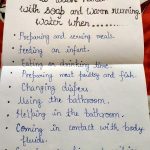 with soap and warm running
water when .......
• Preparing and serving meals.
• Feeding an infant.
Eating or drinking time.
• Preparing meat, poultry and fish.
• Changing diapers
• Using the bathroom.
• Helping in the bathroom.
• Coming in contact with body
fluids.